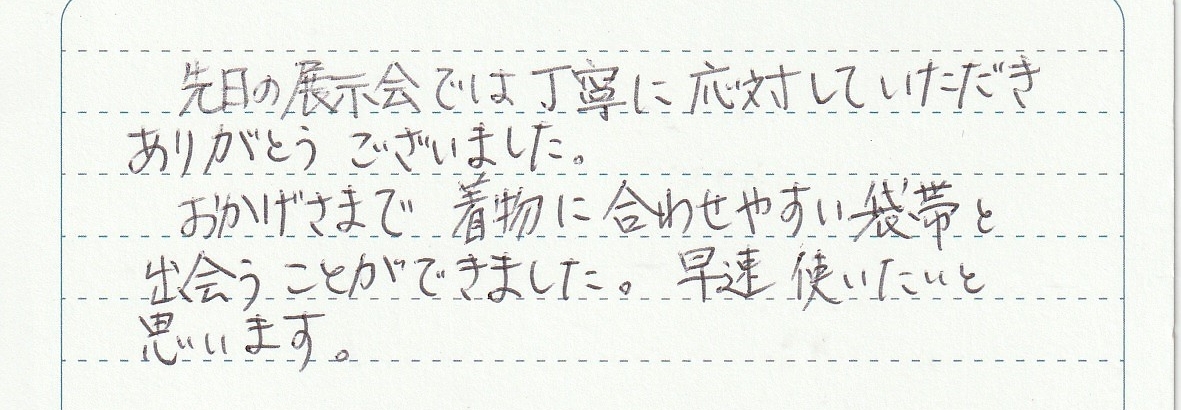 先日の展示会では丁寧に応対していただき
ありがとうございました。
おかげさまで着物に合わせやすい袋帯と
出会うことができました。早速使いたいと
思います。